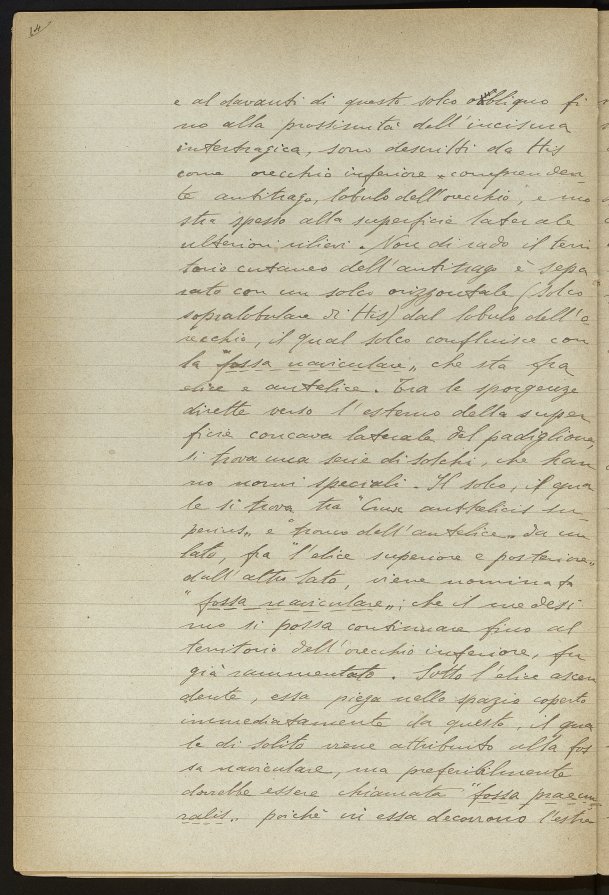 14
e al davanti di questo solco obbliquo fi
no alla prossimità dell'incisura
intertragica, sono descritti da His
come orecchio inferiore comprenden
te antitrago, lobulo dell'orecchio, e mo
stra spesso alla superficie laterale
ulteriori rilievi. Non di rado il terri
torio cutaneo dell'antitrago è sepa
rato con un solco orizzontale (solco
sopralobulare di His) dal lobulo dell'o
recchio, il qual solco confluisce con
la "fossa naviculare" che sta fra
elice e antelice. Tra le sporgenze
dirette verso l'esterno della super
ficie concava laterale del padiglione,
si trova una serie di solchi, che han
no nomi speciali. Il solco, il qua
le si trova tra "Crus anthelicis su
perius" e "tronco dell'antelice" da un
lato, fra "l'elice superiore e posteriore"
dall'altro lato, viene nominata
"fossa naviculare"; che il medesi
mo si possa continuare fino al
territorio dell'orecchio inferiore, fu
già rammentato. Sotto l'elice ascen
dente, essa piega nello spazio coperto
immediatamente da questo, il qua
le di solito viene attribuito alla fos
sa naviculare, ma preferibilmente
dovrebbe essere chiamata "fossa praecru
ralis" poichè in essa decorrono l'estre